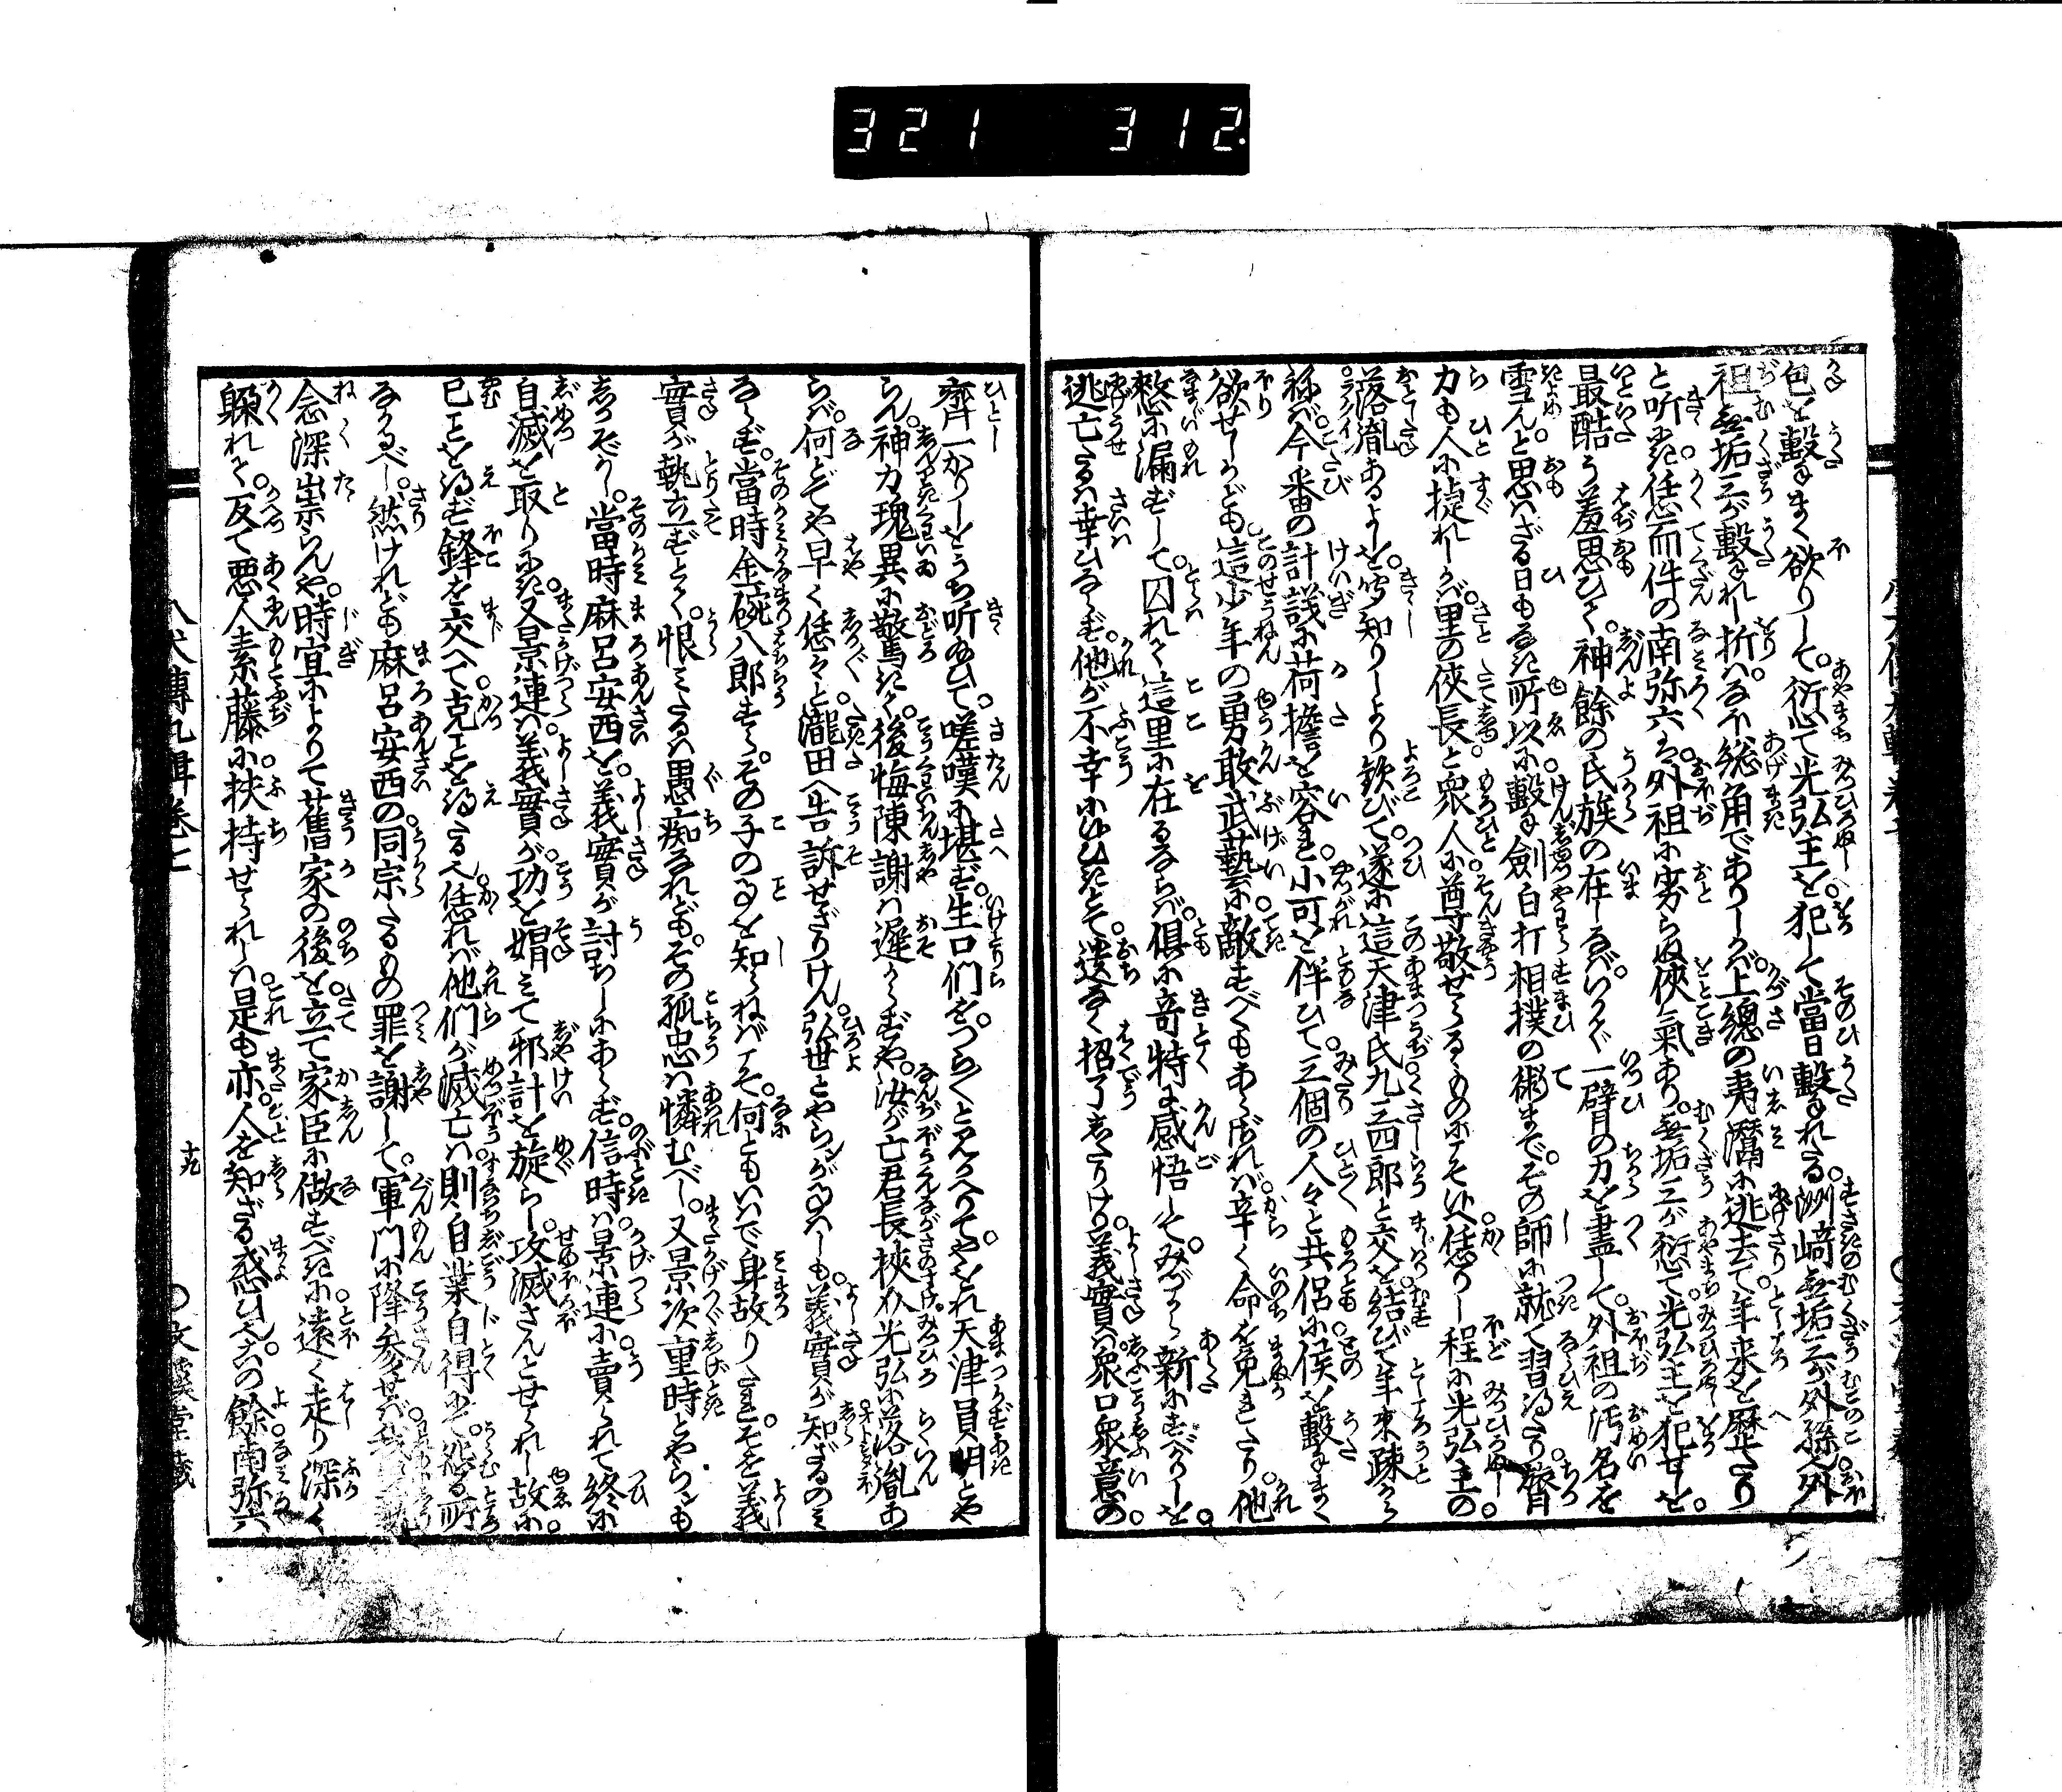 321 312.
包を撃まく欲りして。衍て光弘主を犯して當日撃れたる。洲﨑無垢三が外孫也。外
祖無垢三が撃れし折は。なほ総角でありしが。上總の夷灊に逃去て。年来を歴たり
と听にき。恁而件の南弥六は。外祖に劣らぬ侠氣あり。無垢三が衍て。光弘主を犯せしを。
最酷う羞思ひて。神餘の氏族の在しなば。いかで一臂の力を盡して。外祖の汚名を
雪んと。思はざる日もなき所以に。撃劍白打相撲の術まで。その師に就て習得たり。膂
力も人に捷れしが。里の侠長と。衆人に尊敬せらるゝものにこそ候へ。恁りし程に光弘主の
落胤あるよしを。仄知りしより歓びて。遂に這天津氏九三四郎と。交を結びて年来疎から
ねば。今番の計議に荷擔を容れ。小可を伴ひて。三個の人々と共侶に。侯を撃まく
欲せしかども。這少年の勇敢武藝に。敵すべくもあらざれば。辛く命を免れたり。他
憖に漏ずして。囚れて這里に在るならば。倶に竒特に感悟して。みづから新にすべかりしを。
逃亡たるは幸ひならず。他が不幸にひひきとて。遺なく招了したりけり。義實は衆口衆意の。
齊一かりしをうち听給ひて。嗟嘆に堪ず。生口們を。つらつらと見かへりて。やをれ天津員明とや
らん。神力瑰異に驚きて。後悔陳謝は遅からずや。汝が亡君長挾介光弘に。落胤あ
らば。何どてや早く恁々と。瀧田へ告訴せざりけん。弘世とやらンが事はしも。義實が知ざるのみ
ならず。當時金碗八郎すら。その子の事を知らねばこそ。何ともいはで身故りたれ。そを義
實が執立ずとて。恨みたるは愚痴なれども。その孤忠は憐むべし。又景次重時とやらンも
しかぞかし。當時麻呂安西を。義實が討ちしにあらず。信時は景連に賣られて。終に
自滅を取りにき。又景連は義實が。功を娟みて邪計を旋らし。攻滅さんとせられし故に。
已ことを得ず鋒を交へて。克ことを得たる也。恁れば他們が滅亡は。則自業自得にて。怨る所
なかるべし。然けれども麻呂安西の。同宗たるもの罪を謝して。軍門に降参せば。我
念深く祟らんや。時宜によりて舊家の後を。立て家臣に做すべきに。遠く走り深く
躱れて。反て悪人素藤に。扶持せられしは。是も亦。人を知ざる惑ひ也。その餘南弥六
八犬傳九輯巻七
十九
〇文溪堂藏